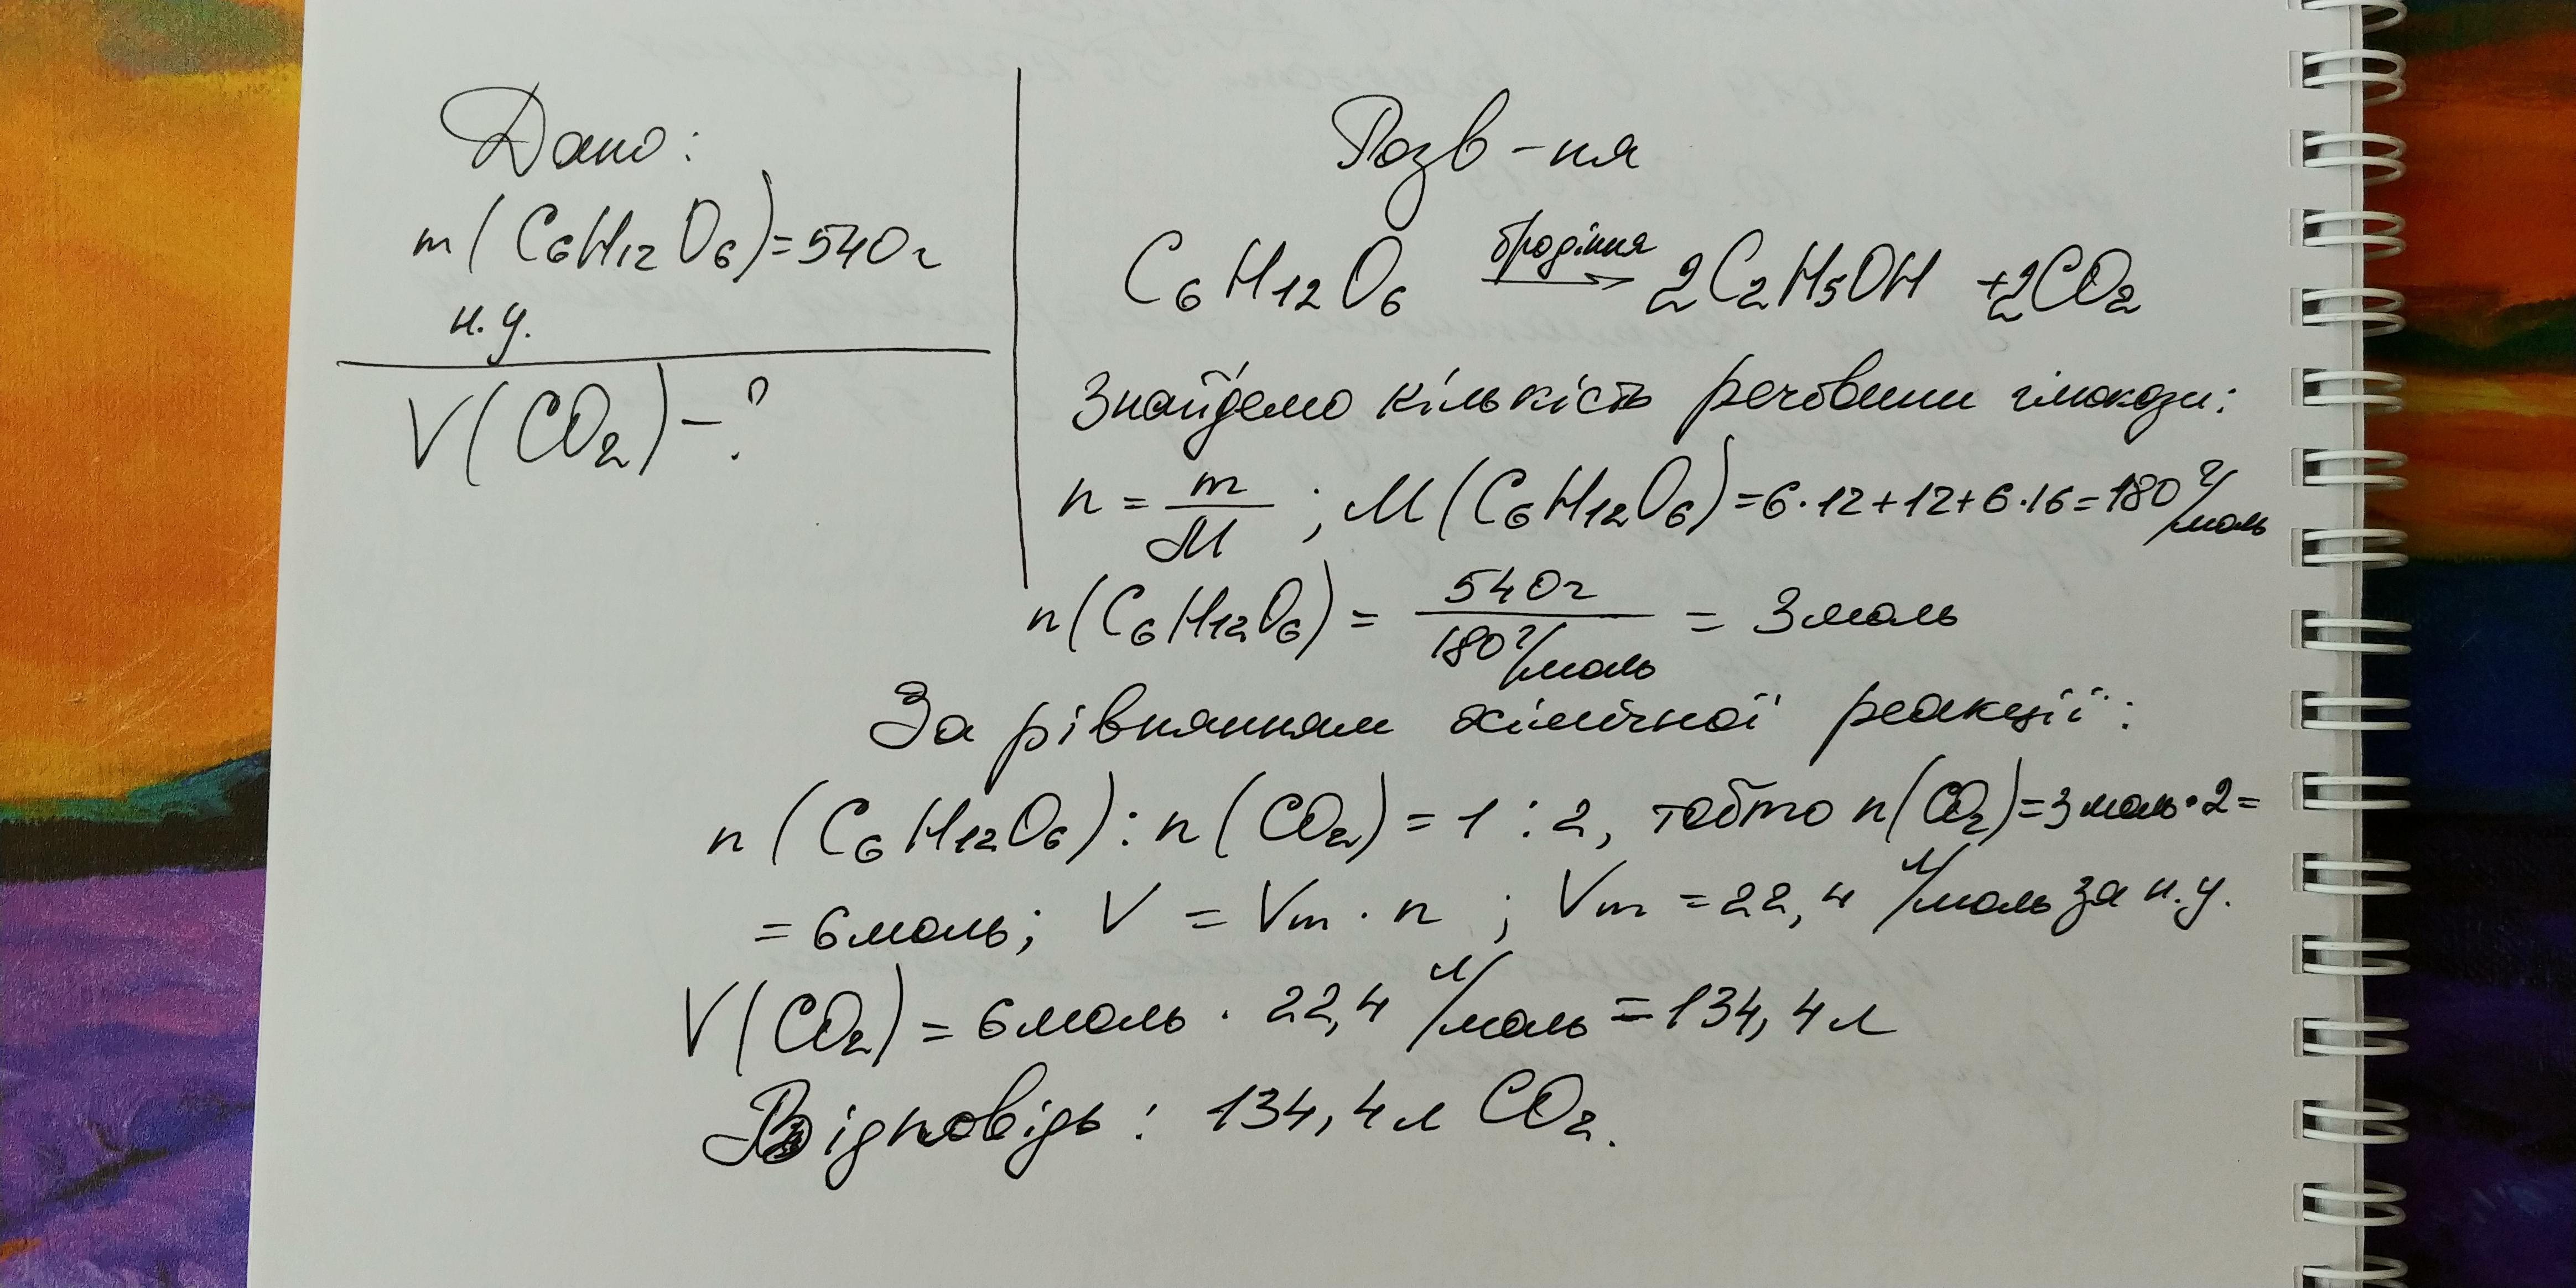 Дано:
m(C₆H₁₂O₆)=540г
н.у.
V(CO₂)-?
Розв-ня
C₆H₁₂O₆ бродіння → 2C₂H₅OH +2CO₂
Знайдемо кількість речовини глюкози:
n = m/M ; M(C₆H₁₂O₆)=6·12+12+6·16=180 г/моль
n(C₆H₁₂O₆) = 540г / 180 г/моль = 3моль
За рівнянням хімічної реакції:
n(C₆H₁₂O₆):n(CO₂)=1:2, тобто n(CO₂)=3моль·2=
=6моль; V = Vm·n ; Vm =22,4 л/моль за н.у.
V(CO₂)=6моль · 22,4 л/моль =134,4л
Відповідь: 134,4л CO₂.